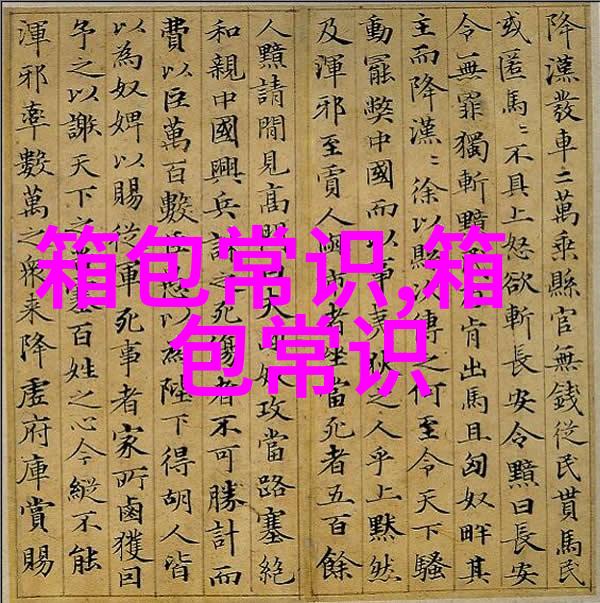 箱包常识,箱
包常识
降漢發車二萬乘縣官無錢從民貰馬民
或匿馬〻不具上怒欲斬長安令黯曰長安
令無罪獨斬黯肯出馬且匈奴畔其
主而降漢〻徐以縣傳之何至令天下騷
動罷弊中國而以事夷狄之人乎上默然
及渾邪至賈人市者坐當死者五百餘
人黯請間見高門奴攻當路塞絕
和親中國興兵誅之死傷者不可勝計而
費以巨萬百數愚以為陛下得胡人皆
以為奴婢以賜從軍死事者家所鹵獲因
予之以謝天下之百姓之心今縱不能
渾邪率數萬之衆來降虛府庫賞賜